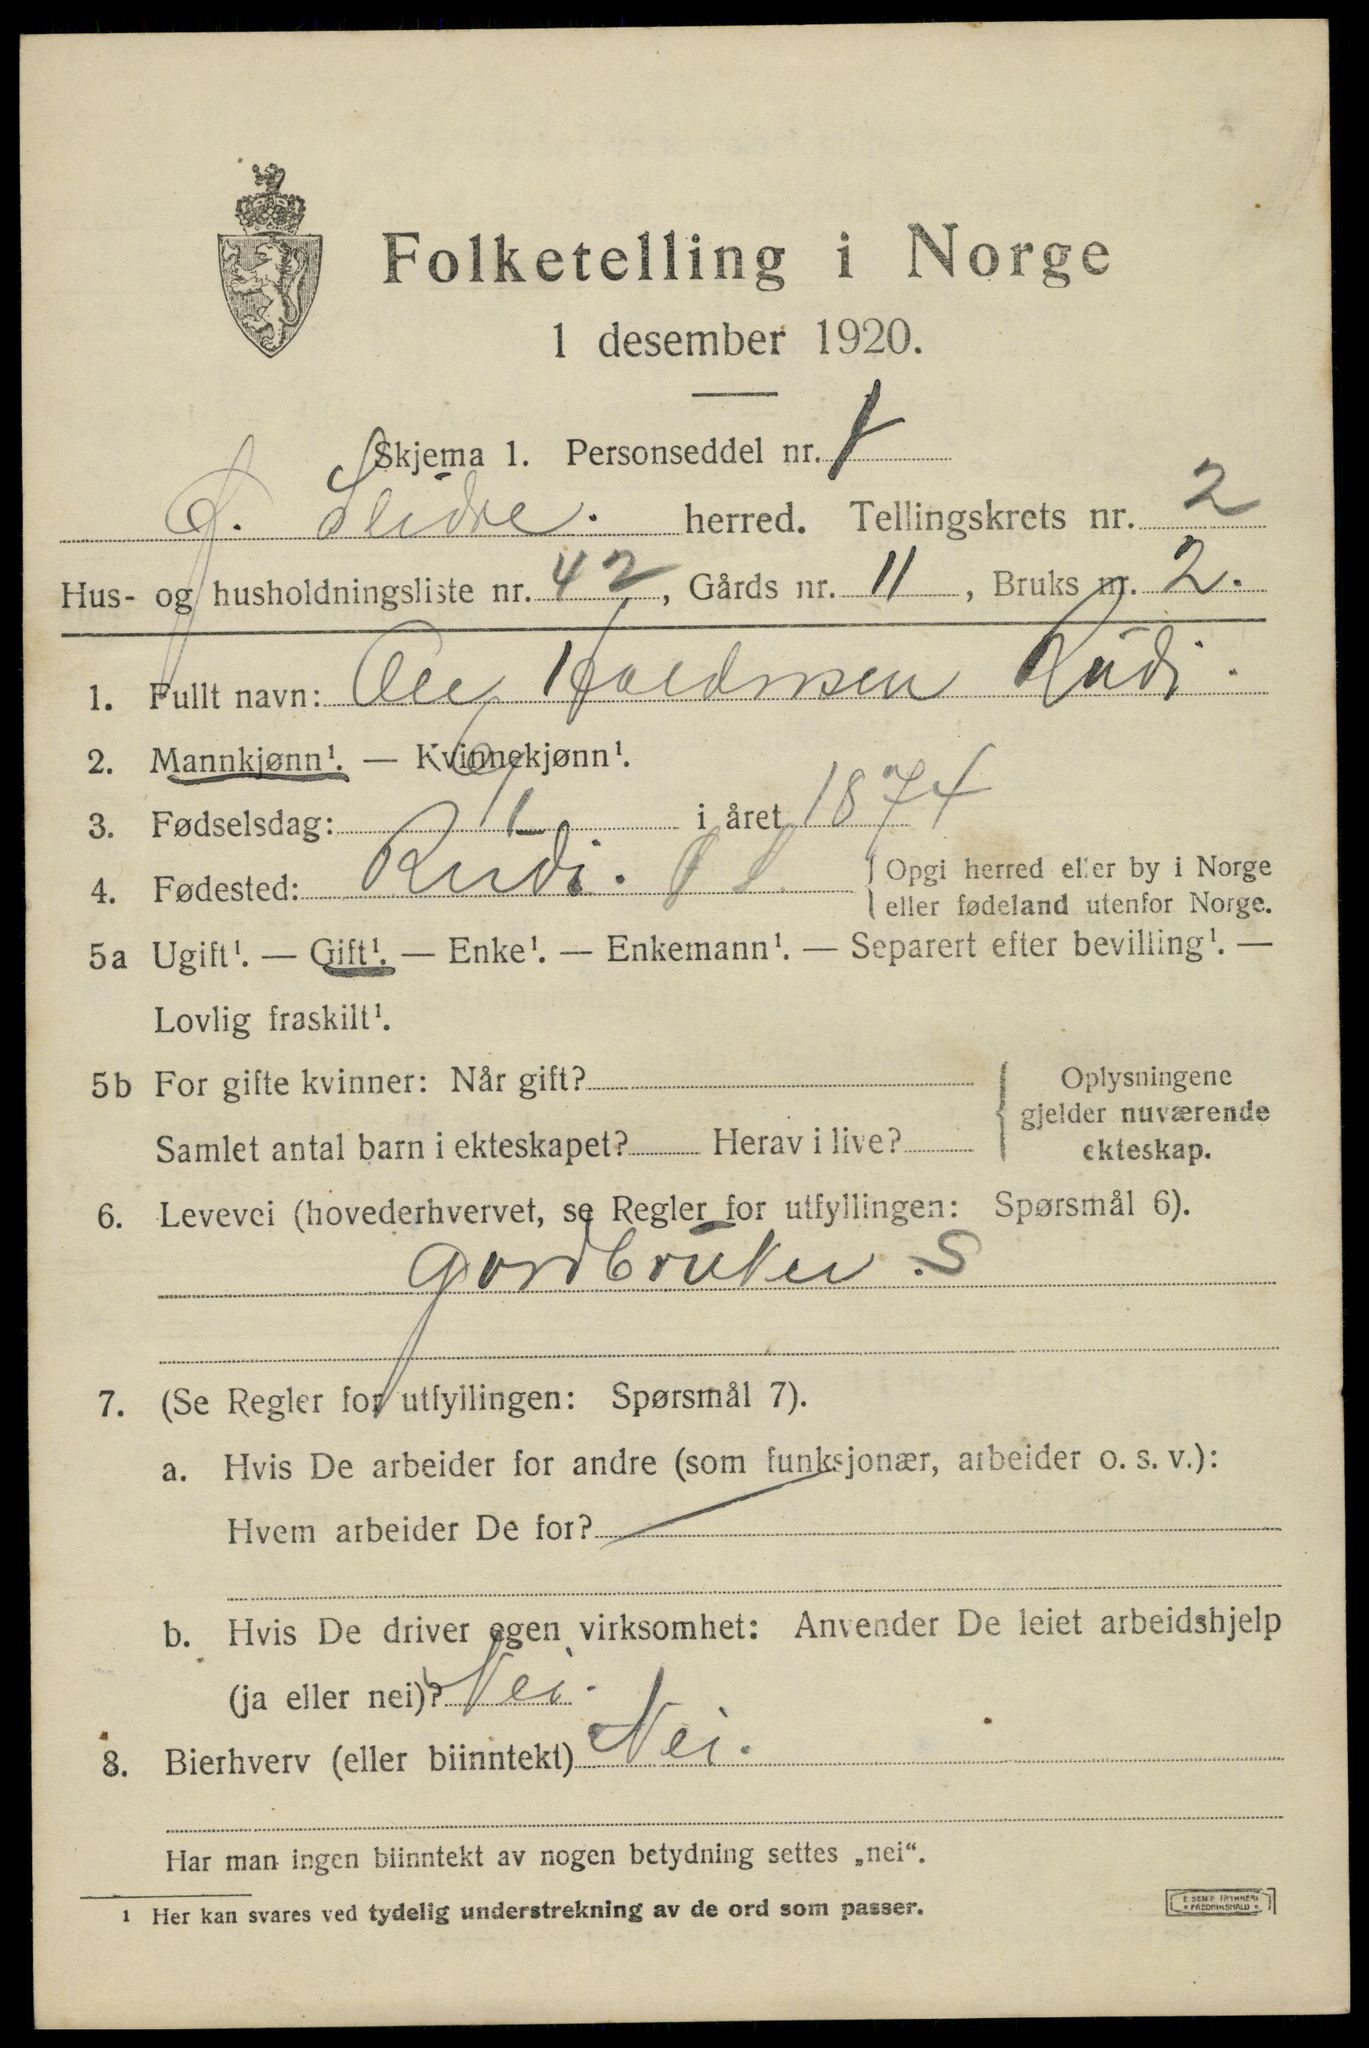 Folketelling i Norge
1 desember 1920.
Skjema 1. Personseddel nr. 1
Ø. Slidre. herred. Tellingskrets nr. 2
Hus- og husholdningsliste nr. 42, Gårds nr. 11, Bruks nr. 2.
1. Fullt navn: Ole Haldorsen Rudi.
2. Mannkjønn¹. — Kvinnekjønn¹.
3. Fødselsdag: 6/1 i året 1874
4. Fødested: Rudi. Ø S. { Opgi herred eller by i Norge
eller fødeland utenfor Norge.
5a Ugift¹. — Gift¹. — Enke¹. — Enkemann¹. — Separert efter bevilling¹. —
Lovlig fraskilt¹.
5b For gifte kvinner: Når gift? { Oplysningene
gjelder nuværende
Samlet antal barn i ekteskapet? Herav i live? ekteskap.
6. Levevei (hovederhvervet, se Regler for utfyllingen: Spørsmål 6).
gordbruker . S
7. (Se Regler for utfyllingen: Spørsmål 7).
a. Hvis De arbeider for andre (som funksjonær, arbeider o. s. v.):
Hvem arbeider De for? —
b. Hvis De driver egen virksomhet: Anvender De leiet arbeidshjelp
(ja eller nei)? Nei.
8. Bierhverv (eller biinntekt) Nei.
Har man ingen biinntekt av nogen betydning settes „nei“.
¹ Her kan svares ved tydelig understrekning av de ord som passer.
E SEM'S TRYKKERI
* FREDRIKSHALD *